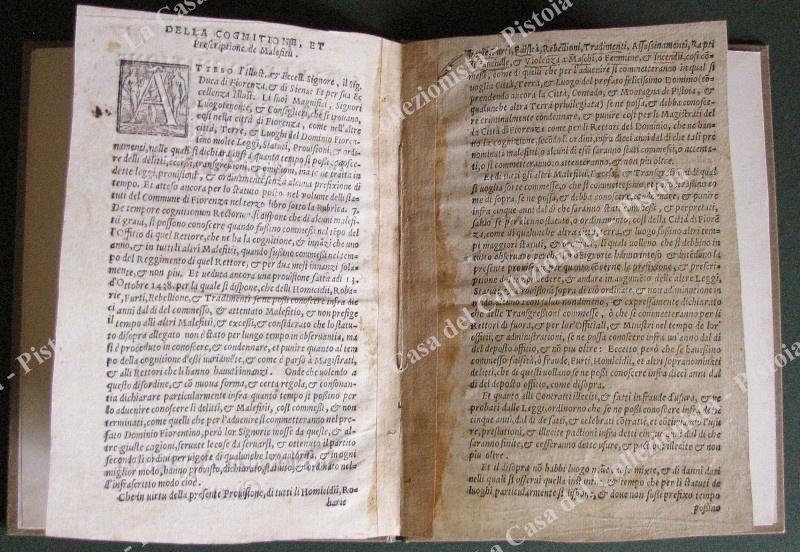 DELLA COGNITIONE, ET
Prescriptione de Malefitii.
ATTESO l'Illust. & Eccell. Signore, il Sig.
Duca di Fiorenza, & di Siena: Et per sua Ec
cellenza Illust. Li suoi Magnifici, Signori
Luogotenente, & Consiglieri, che si trouano,
cosi nella città di Fiorenza, come nell'altre
città, Terre, & Luoghi del Dominio Fioren
tino molte Leggi, Statuti, Prouisioni, & ordi
namenti, nelli quali si dichiara infra quanto tempo si possa
re delli delitti, eccessi, transgressioni, & ommissioni, ma se ne tratta in
dette leggi, prouisioni, & ordinamenti senza alcuna prefissione di
tempo. Et atteso ancora per lo statuto posto nel volume delli sta
tuti del Commune di Fiorenza nel terzo libro sotto la Rubrica. 7.
De tempore cognitionum Rectorum si dispone che di alcuni malefi
tii graui, si possono conoscere quando fussino commessi nel tempo del
l'Offitio di quel Rettore, che ne ha la cognitione, & innāzi che uno
anno, & in tutti li altri Malefitii, quando fussino commessi nel tem
po del Reggimento di quel Rettore, & per dua mesi innanzi sola
mente, & non piu. Et veduta ancora una prouisione fatta a di 13.
d'Ottobre 1438. per la quale si dispone, che delli Homicidii, Robarie,
Furti, Rebellione, & Tradimenti se ne possi conoscere infra die
ci anni dal dì del commesso, & attentato Malefitio, & non prefige
il tempo alli altri Malefitii, & excessi, & considerato che lo statu
to disopra allegato non è stato per lungo tempo in obseruantia, ma
si è proceduto in conoscere, & condennare, et punire quanto al tem
po della cognitione d'essi uariamēte, & come è parso à Magistrati,
& alli Rettori che li hanno hauuti innanzi. Onde che uolendo a
questo disordine, & cō nuoua forma, & certa regola, & consonan
tia dichiarare particularmente infra quanto tempo si possino per
lo aduenire conoscere li delitti, & Malefitii, cosi commessi, & non
terminati, come quelli che per l'aduenire si commetteranno nel pre
fato Dominio Fiorentino, però lor Signorie mosse da queste, & al
tre giuste cagioni, seruate le cose da seruarsi, & ottenuto il partito
secondo li ordini per uigore di qualunche loro autorità, & in ogni
miglior modo, hanno prouisto, dichiarato, statuito, & ordinato nel
l'infrascritto modo cioè.
Che in virtu della presente Prouisione, di tutti li Homicidii, Ro
barie
Furti, Falsità, Rebellioni, Tradimenti, Assassinamenti, Rapti
& Violenza a Maschi, o Femmine, & Incendii, cosi com
messi, come di quelli che per l'aduenire si commetteranno in qual si
uoglia Città, Terra, & Luogo del prefato felicissimo Dominio (com
prendendo ancora la Città, Contado, & Montagna di Pistoia, &
qualunque altra Terra priuilegiata) se ne possa, & debba conosce
re criminalmente condennare, & punire cosi per li Magistrati del
la Città di Fiorenza come per li Rettori del Dominio, che ne han
no cognitione, secōdo li ordini, infra dieci anni dal dì che tali pre
nominati malefitii, o alcuni di essi saranno stati commessi, o atten
tati, o si commetteranno, o attenteranno, & non piu oltre.
Et di tutti gli altri Malefitii, Excessi, & Transgressioni di qual
si uoglia sorte commesse, o che si commettessino, et di qualunche no
me di sopra, se ne possa, & debba conoscere, condennare, & puni
re infra cinque anni dal dì che saranno stati commessi, & perpetrati,
saluo se per alcuno statuto, o ordinamento, cosi della Città di Fiorē
za, come di qualunche altra Terra, o luogo fussino altri tempi
maggiori statuti, & li quali uollono che si debbino in
modo obseruare però che lor Signorie hanno inteso & intendono la
presente prouisione quanto concerne la prefissione, & prescri
ptione del tempo & uedere, & augumentare in delle altre Leggi,
Statuti, & Prouisioni sopra di ciò ordinate, & non ad innouare in
modo alcuno con saluo nondimeno, & expressamente dichiarato
che delle Transgressioni commesse, ò che si commetteranno per li
Rettori di fuora, & per lor'Offitiali, & Ministri nel tempo de lor'
offitii, & Ministerii, se ne possa conoscere infra un'anno dal dì
del deposto offitio, & nō piu oltre: Eccetto però che se hauessino
commesso falsità, o fraude, Furti, Homicidii, et altri delitti atroci,
che di questi uollono se ne possa conoscere infra dieci anni dal
dì del deposto offitio, come disopra.
Et quanto alli Contratti illeciti, & fatti in fraude d'usura, & re
probati dalle Leggi, ordinorno che se ne possi conoscere infra
cinque anni, dal dì de fatti, & celebrati cōtratti, et cōtinoue l'u
sure, prestationi, & illecite pactioni infra detti cinque anni dal dì che
saranno finite, & cessaranno dette usure, pactioni illecite & non
piu oltre.
Et il disopra nō habbi luogo nelle cose miste, & di danni dati
nelli quali si osserui quella instantia, & tempo che per li statuti de
luoghi, particularmente si dispone, & doue non fussi prefixo tempo
possino
La Casa del Collezionista - Pistoia
Casa del Collezionista - Pistoia